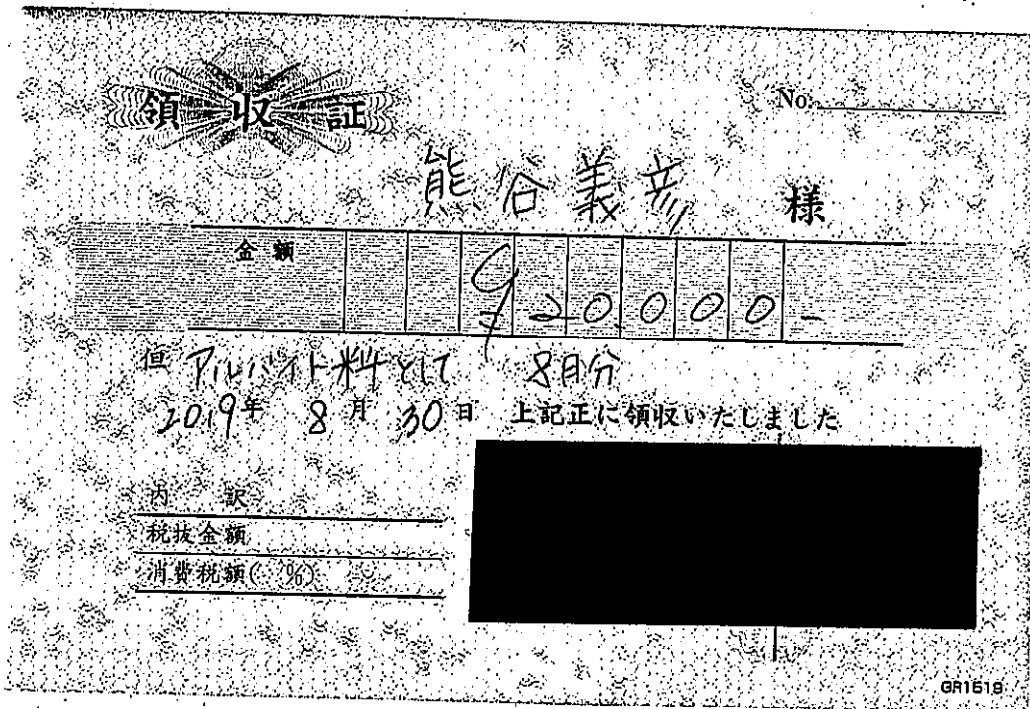 領収証
No.
熊谷義彦 様
金額 ¥20000-
但 アルバイト料として 8月分
2019年 8月 30日 上記正に領収いたしました
内訳
税抜金額
消費税額( %)
GR1519